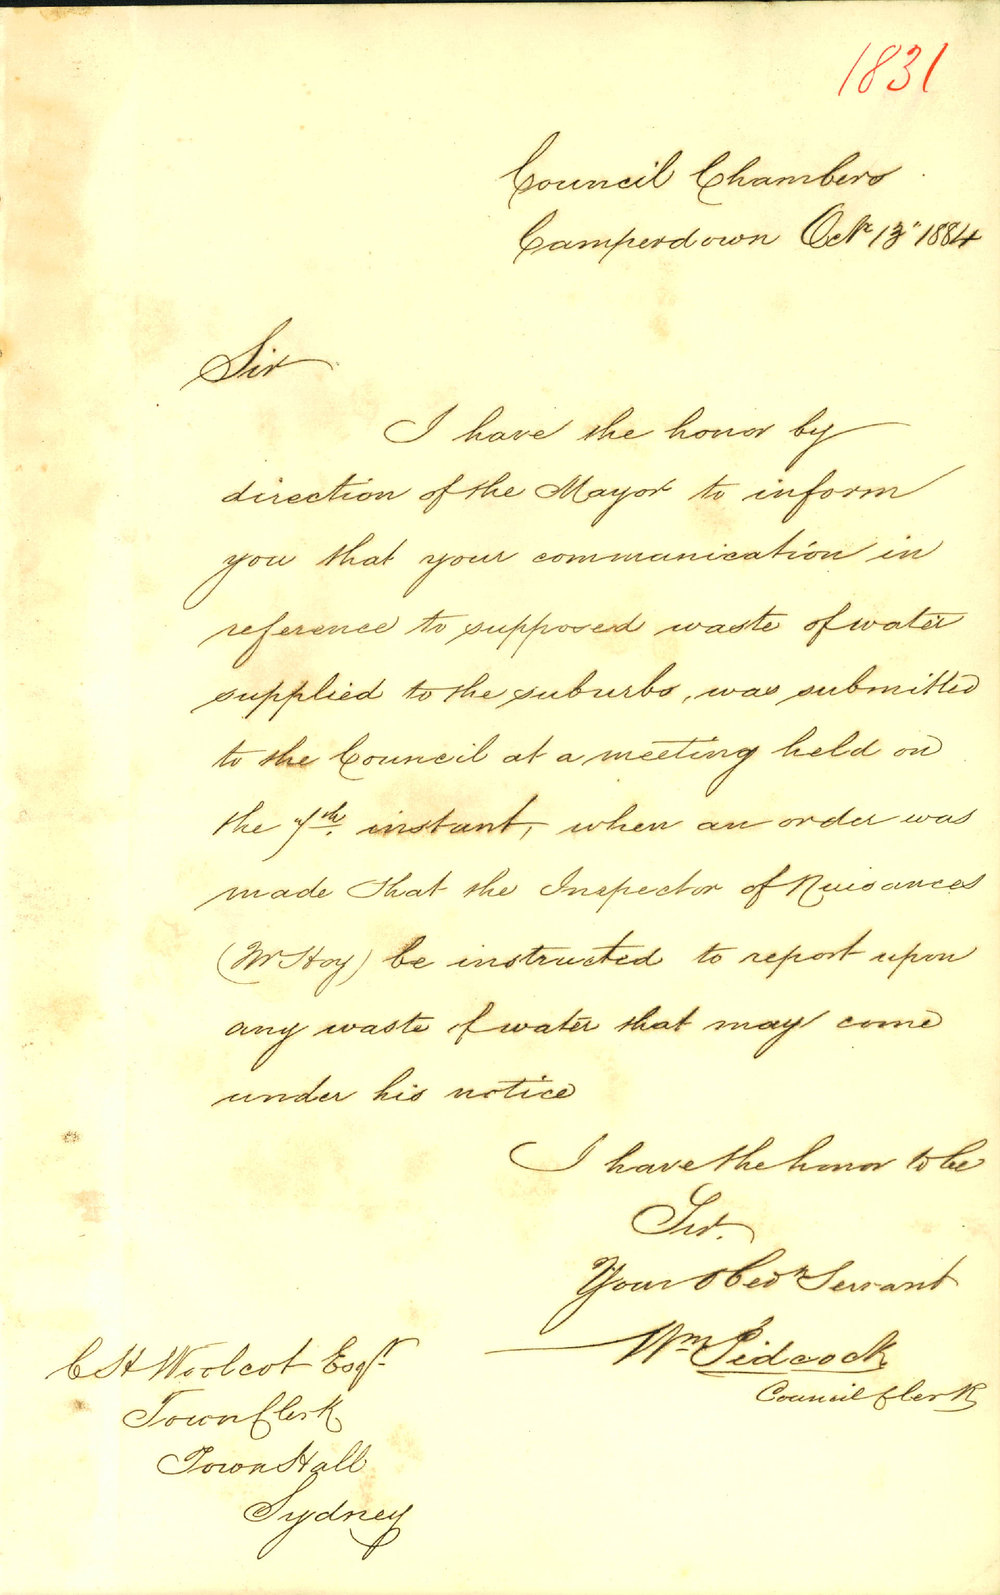 1831
Council Chambers
Camperdown Octr 13" 1884
Sir
I have the honor by
direction of the Mayor to inform
you that your communication in
reference to supposed waste of water
supplied to the suburbs, was submitted
to the Council at a meeting held on
the 7th instant, when an order was
made that the Inspector of Nuisances
(Mr Hoy) be instructed to report upon
any waste of water that may come
under his notice
I have the honor to be
Sir.
Your Obedt Servant
Wm Pidcock
Council Clerk
C H Woolcot Esqr
Town Clerk
Town Hall
Sydney